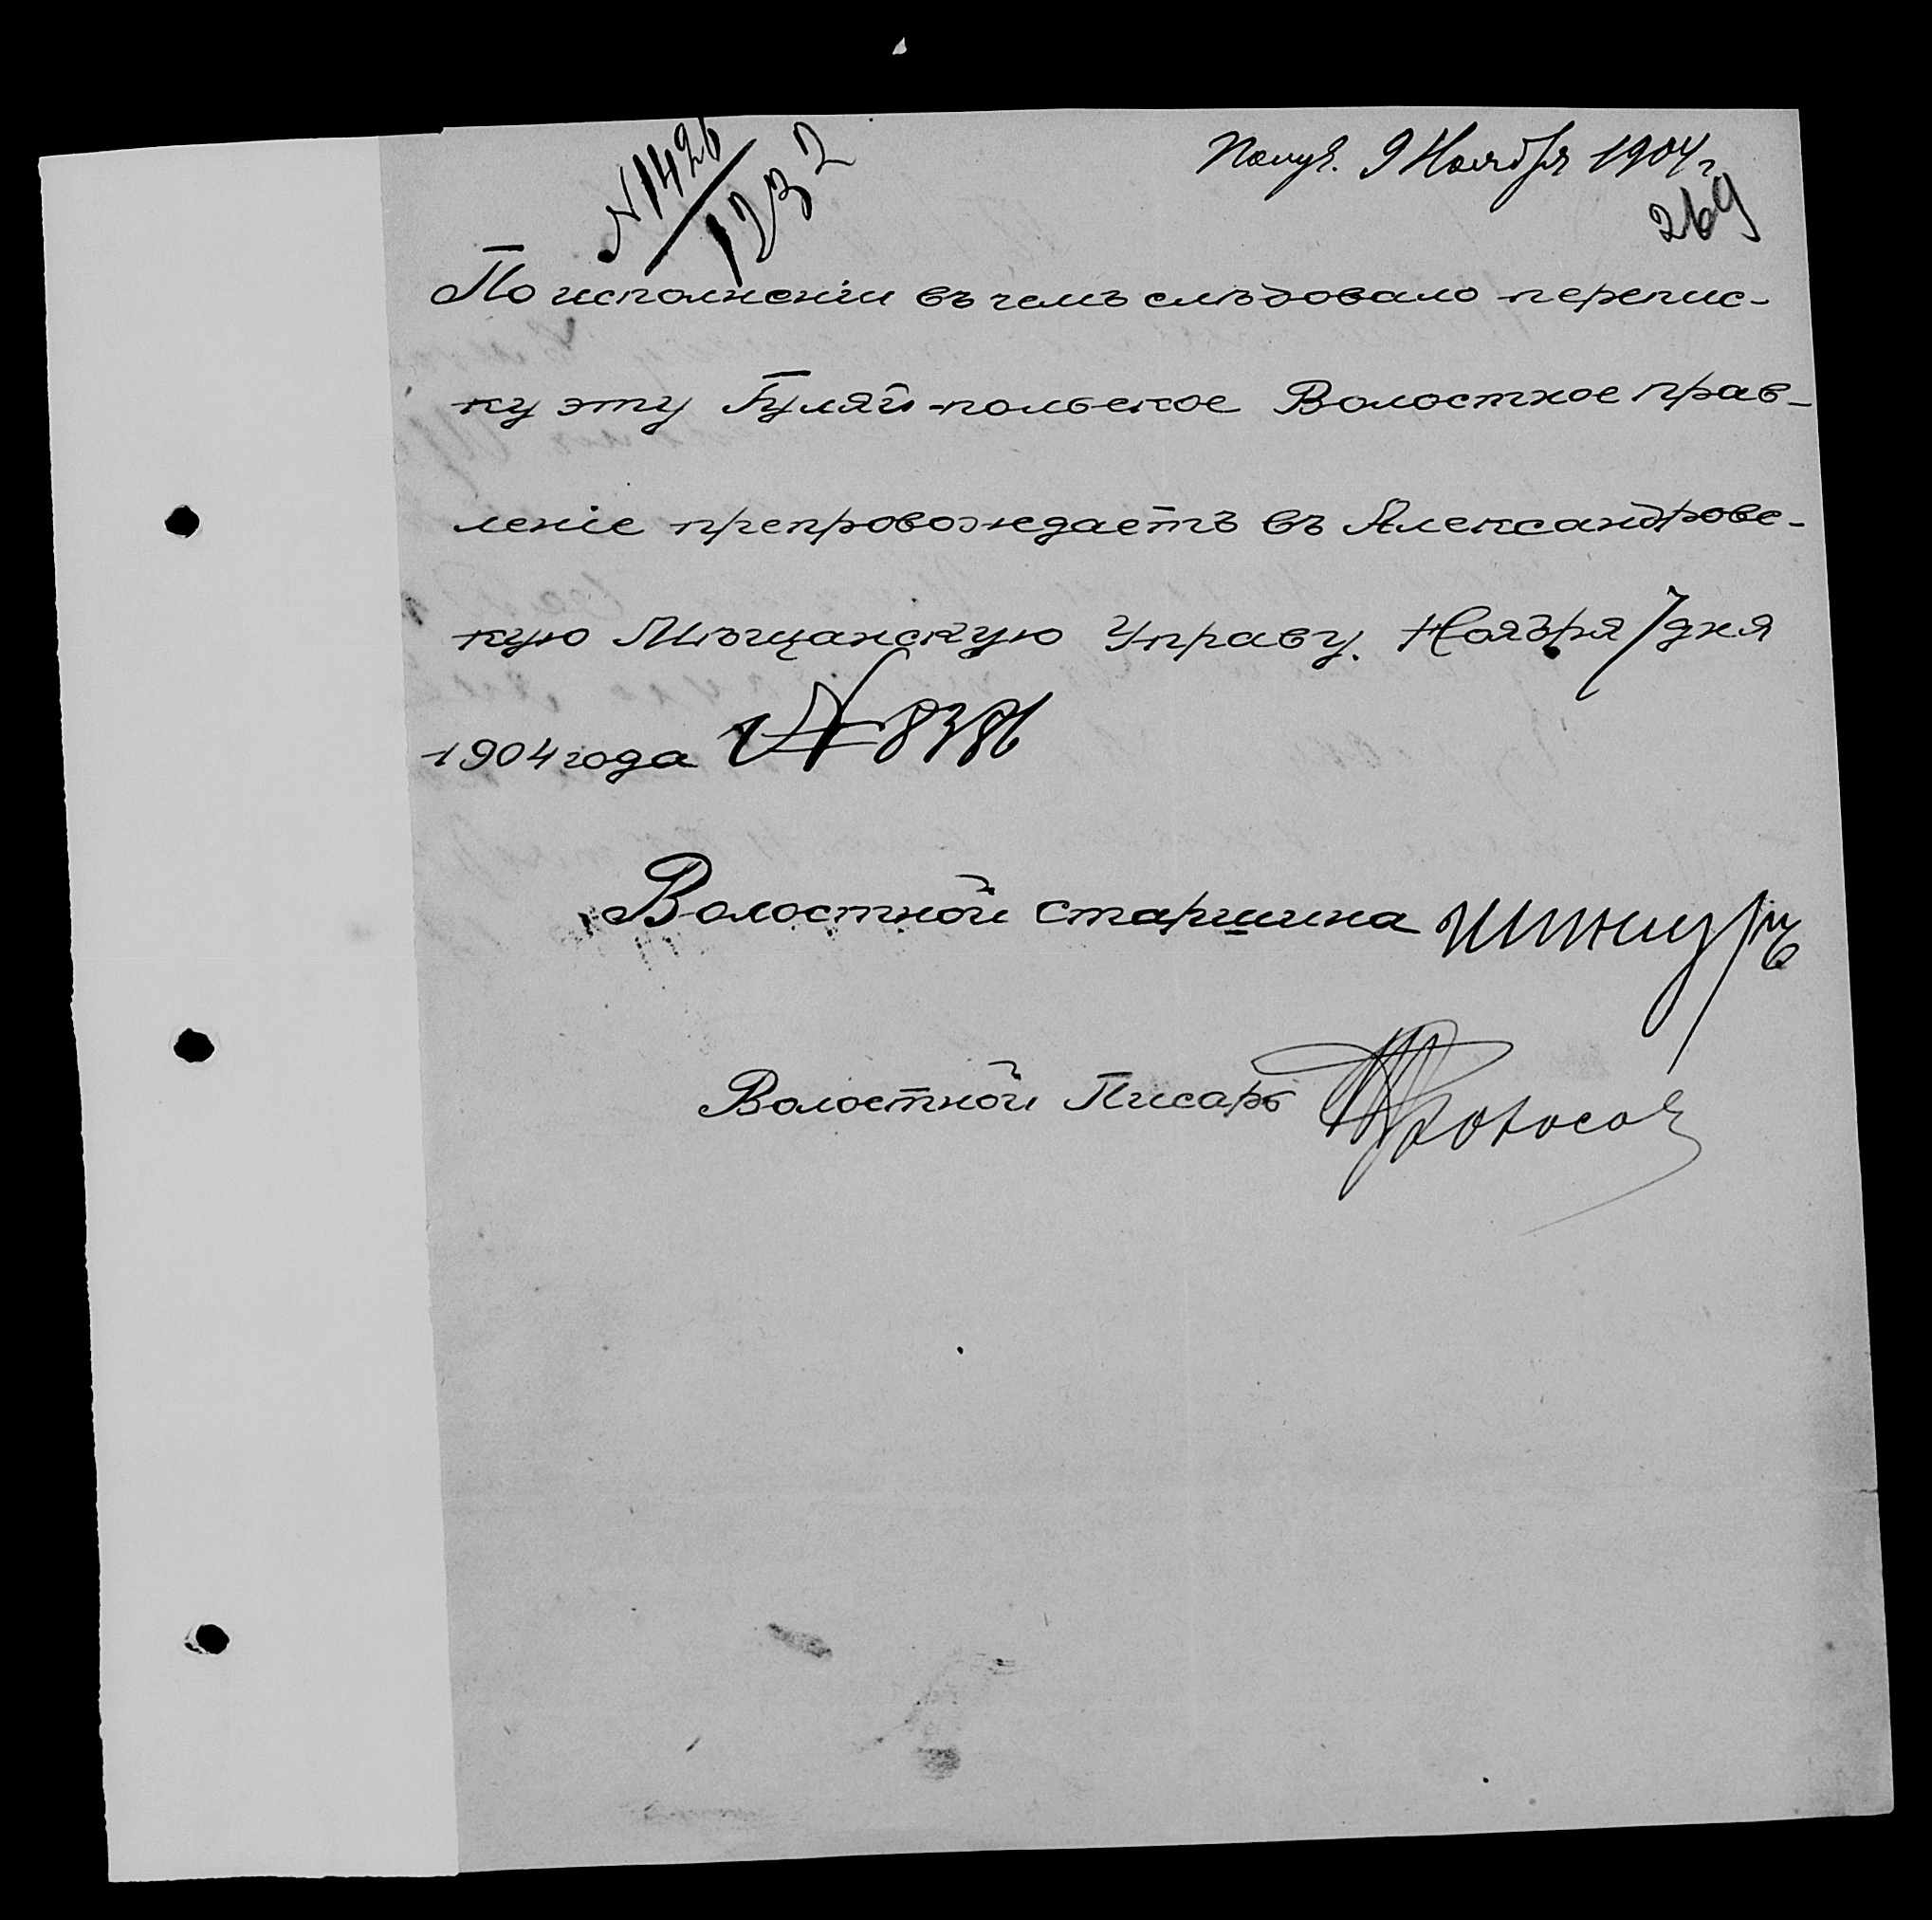 № 1426/1232
Получ. 9 Ноября 1904 г
269
По исполненіи въ чемъ слѣдовало перепис-
ку эту Гуляй-польское Волостное прав-
леніе препровождаетъ въ Александровс-
кую Мѣщанскую Управу. Ноября 7 дня
1904 года № 8386
Волостной старшина
Волостной Писарь